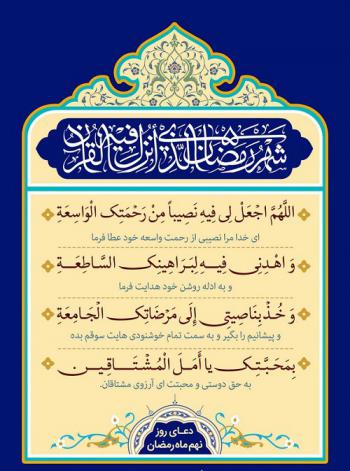 شهر رمضان الذي أنزل فيه القرآن
اللَّهُمَّ اجْعَلْ لِي فِيهِ نَصِيباً مِنْ رَحْمَتِكَ الْوَاسِعَةِ
ای خدا مرا نصیبی از رحمت واسعه خود عطا فرما
وَ اهْدِنِي فِيهِ لِبَرَاهِينِكَ السَّاطِعَةِ
و به ادله روشن خود هدایت فرما
وَ خُذْ بِنَاصِيَتِي إِلَى مَرْضَاتِكَ الْجَامِعَةِ
و پیشانیم را بگیر و به سمت تمام خوشنودی هایت سوقم بده
بِمَحَبَّتِكَ يا أَمَلَ الْمُشْتَاقِينَ
به حق دوستی و محبتت ای آرزوی مشتاقان.
دعای روز
نهم ماه رمضان